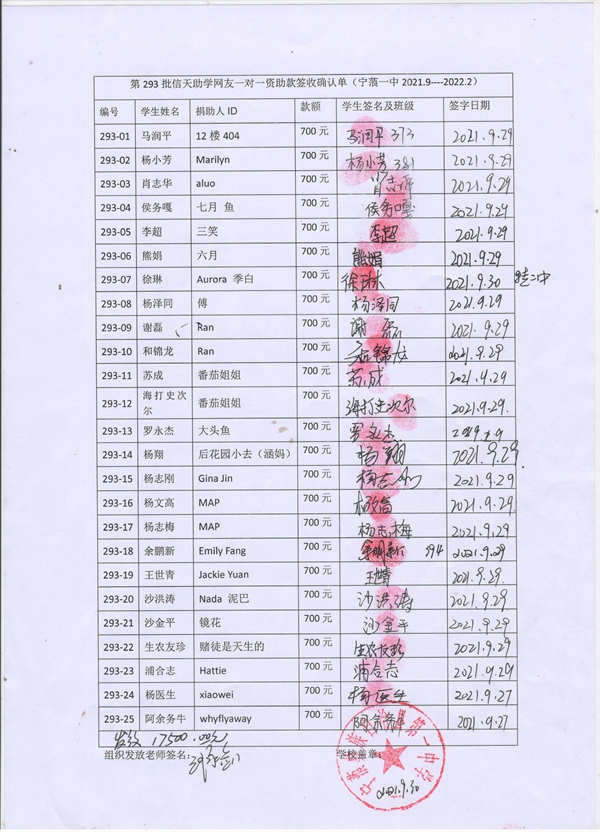 第 293 批信天助学网友一对一资助款签收确认单（宁蒗一中 2021.9----2022.2）
编号 学生姓名 捐助人 ID 款额 学生签名及班级 签字日期
293-01 马润平 12 楼 404 700 元 马润平 373 2021.9.29
293-02 杨小芳 Marilyn 700 元 杨小芳 381 2021.9.29
293-03 肖志华 aluo 700 元 肖志华 2021.9.29
293-04 侯务嘎 七月 鱼 700 元 侯务嘎 2021.9.29
293-05 李超 三笑 700 元 李超 2021.9.29
293-06 熊娟 六月 700 元 熊娟 2021.9.29
293-07 徐琳 Aurora 季白 700 元 徐琳 2021.9.30
293-08 杨泽同 傅 700 元 杨泽同 2021.9.29
293-09 谢磊 Ran 700 元 谢磊 2021.9.29
293-10 和锦龙 Ran 700 元 和锦龙 2021.9.29
293-11 苏成 番茄姐姐 700 元 苏成 2021.9.29
293-12 海打史次尔 番茄姐姐 700 元 海打史次尔 2021.9.29.
293-13 罗永杰 大头鱼 700 元 罗永杰
293-14 杨翔 后花园小去（涵妈） 700 元 杨翔 2021.9.29
293-15 杨志刚 Gina Jin 700 元 杨志刚 2021.9.29
293-16 杨文高 MAP 700 元 杨文高 2021.9.29
293-17 杨志梅 MAP 700 元 杨志梅 2021.9.29
293-18 余鹏新 Emily Fang 700 元 余鹏新 394 2021.9.29
293-19 王世青 Jackie Yuan 700 元 王世青 2021.9.29.
293-20 沙洪涛 Nada 泥巴 700 元 沙洪涛 2021.9.29
293-21 沙金平 镜花 700 元 沙金平 2021.9.29
293-22 生农友珍 赌徒是天生的 700 元 生农友珍 2021.9.29
293-23 浦合志 Hattie 700 元 浦合志 2021.9.29
293-24 杨医生 xiaowei 700 元 杨医生 2021.9.27
293-25 阿余务牛 whyflyaway 700 元 阿余务牛 2021.9.27
发放 17500.00元
组织发放老师签名： 学校盖章：
2021.9.30